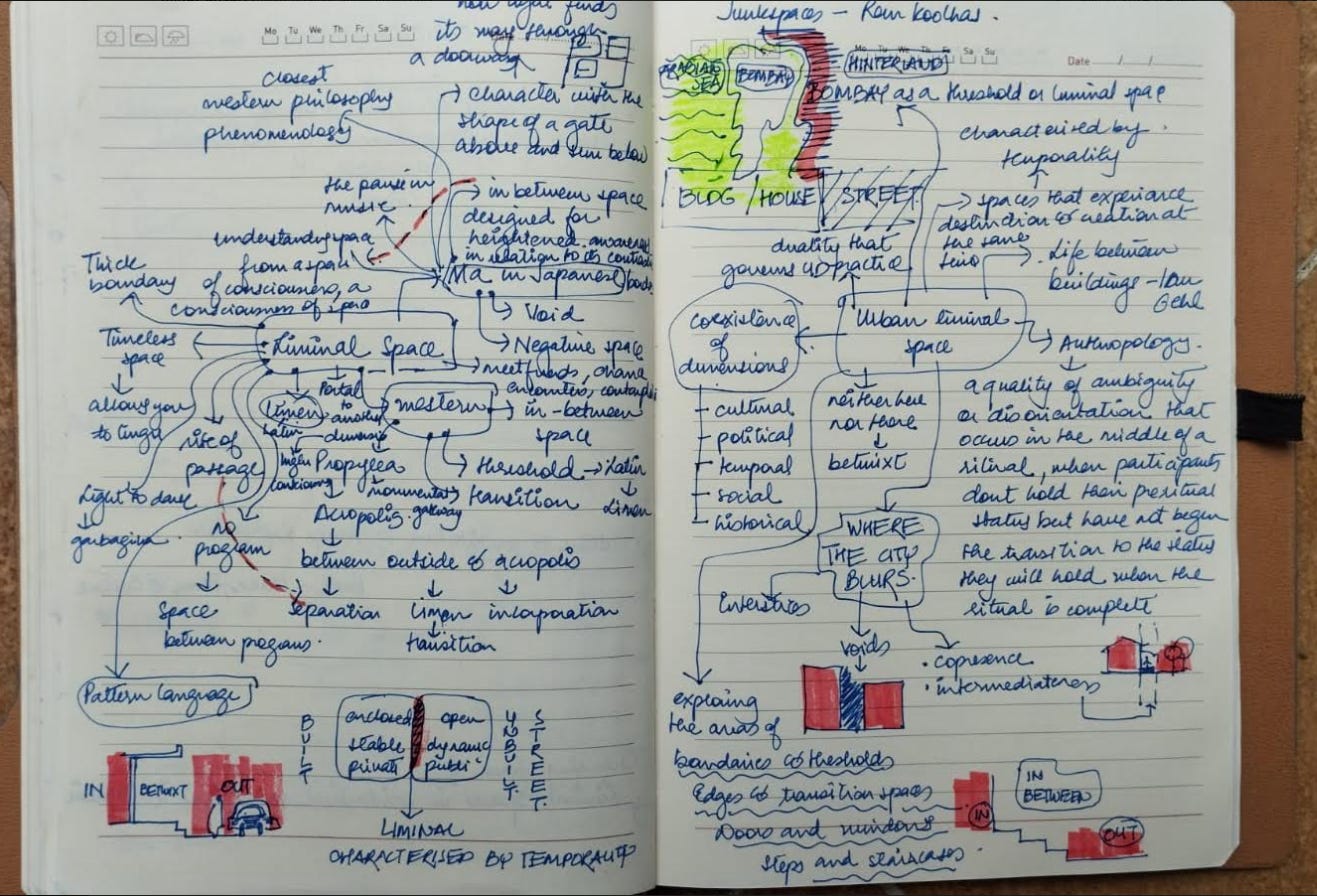 its way through
a doorway
Mo Tu We Th Fr Sa Su
closest
western philosophy
phenomenology
character with the
shape of a gate
above and sun below
the pause in
music
in between space
designed for
heightened
in relation to its
understanding space
from a span
of consciousness, a
consciousness of space
Ma in Japanese
Thick
boundary
Void
Timeless
space
Liminal Space
Negative space
meet funds, drama
encounters,
allows you
to linger
Limen
Latin
Portal
to
another
dimension
western
in-between
space
rite of
passage
Propylea
monumental
gateway
threshold → Latin
Limen
transition
Light to dark
garbagriha
Acropolis
no
program
between outside & acropolis
Space
between programs.
separation
Limen
transition
incorporation
Pattern Language
BUILT
enclosed
stable
private
open
dynamic
public
UNBUILT
STREET
IN
BETWIXT
OUT
LIMINAL
CHARACTERISED BY TEMPORALITY
Junkspaces - Rem Koolhas.
Mo Tu We Th Fr Sa Su
Date
ARABIAN
SEA
BOMBAY
HINTERLAND
BOMBAY as a threshold or liminal space
characterised by
temporality
BLDG / HOUSE / STREET
spaces that experiance
destruction & creation at
the same
time
duality that
governs UD practice
Life between
buildings - Jan
Gehl
coexistence
of
dimensions
Urban liminal
space
Anthropology.
cultural
political
temporal
social
historical
neither here
nor there
betwixt
a quality of ambiguity
or disorientation that
occurs in the middle of a
ritual, when participants
dont hold their preritual
status but have not begun
the transition to the status
they will hold when the
ritual is complete
WHERE
THE CITY
BLURS.
Interstries
voids
copresence
intermediateness
exploring
the areas of
boundaries & thresholds
Edges & transition spaces
Doors and windows
Steps and staircases.
IN
IN
BETWEEN
OUT